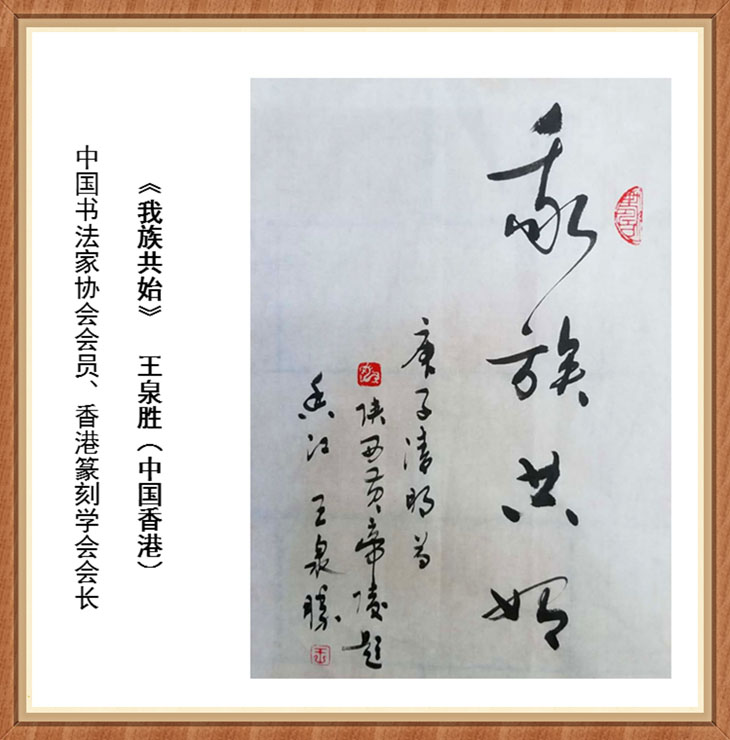 我族共始
庚子清明为
陕西黄帝陵题
香江 王泉胜
《我族共始》 王泉胜（中国香港）
中国书法家协会会员、香港篆刻学会会长